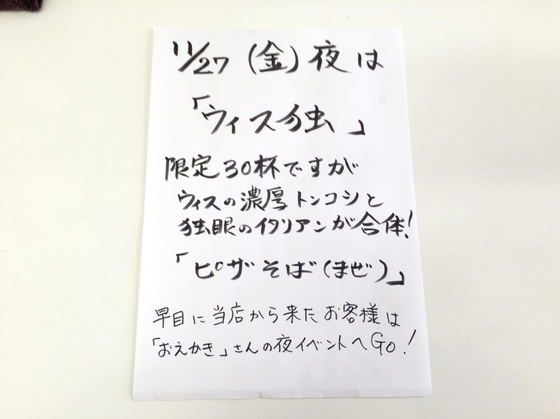 11/27（金）夜は
「ウィス独」
限定30杯ですが
ウィスの濃厚トンコシと
独眼のイタリアンが合体!
「ピザそば（まぜ）」
早目に当店から来たお客様は
「おえかき」さんの夜イベントへGo!